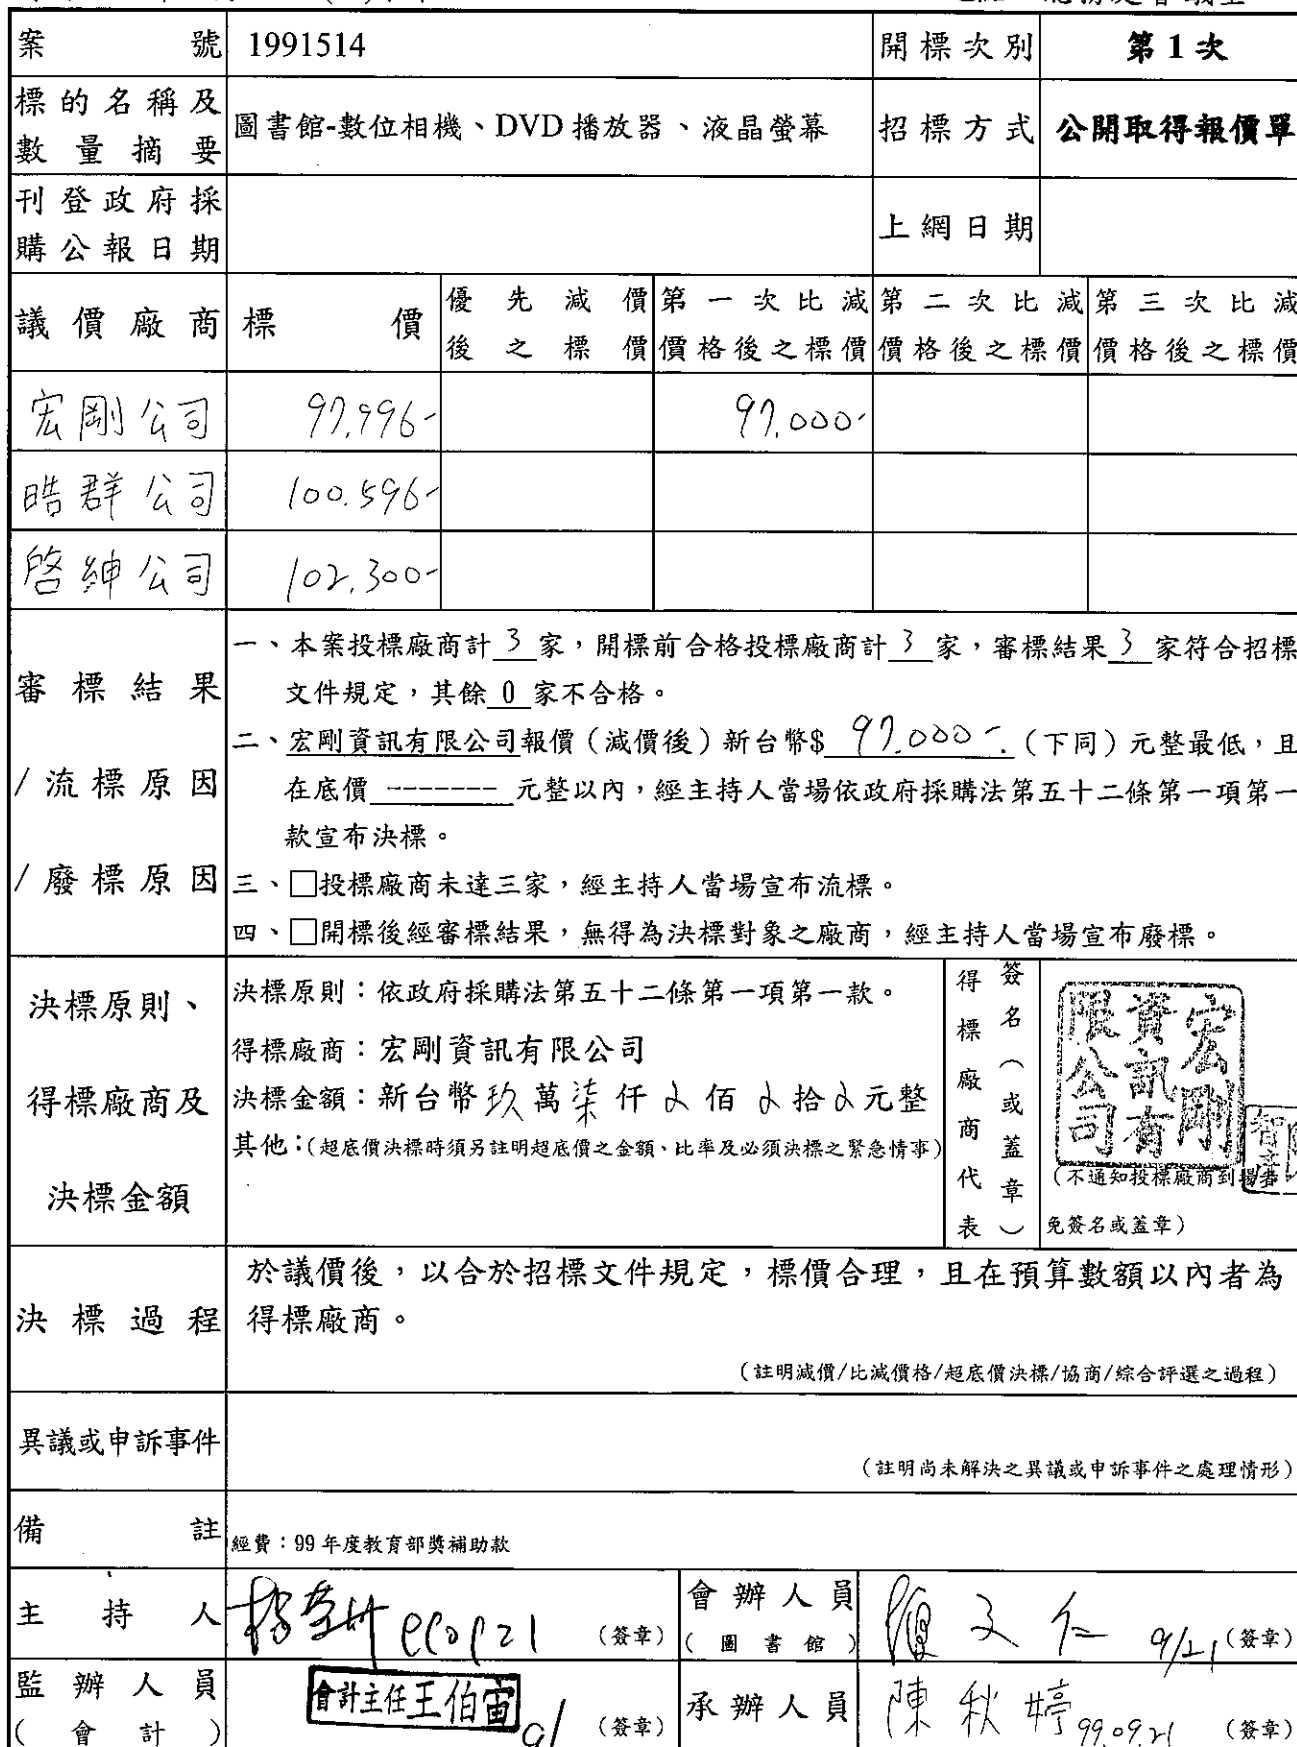 案號 1991514 開標次別 第1次
標的名稱及數量摘要 圖書館-數位相機、DVD播放器、液晶螢幕 招標方式 公開取得報價單
刊登政府採購公報日期 上網日期
議價廠商 標價 優先減價後之標價 第一次比減價格後之標價 第二次比減價格後之標價 第三次比減價格後之標價
宏剛公司 97,996- 97,000-
晧群公司 100,596-
啓紳公司 102,300-
審標結果
/流標原因
/廢標原因
一、本案投標廠商計 3 家,開標前合格投標廠商計 3 家,審標結果 3 家符合招標
文件規定,其餘 0 家不合格。
二、宏剛資訊有限公司報價(減價後)新台幣$ 97,000-.(下同)元整最低,且
在底價 ------- 元整以內,經主持人當場依政府採購法第五十二條第一項第一
款宣布決標。
三、□投標廠商未達三家,經主持人當場宣布流標。
四、□開標後經審標結果,無得為決標對象之廠商,經主持人當場宣布廢標。
決標原則、
得標廠商及
決標金額
決標原則:依政府採購法第五十二條第一項第一款。
得標廠商:宏剛資訊有限公司
決標金額:新台幣玖萬柒仟0佰0拾0元整
其他:(超底價決標時須另註明超底價之金額、比率及必須決標之緊急情事)
得標廠商代表
簽名(或蓋章)
宏剛資訊有限公司
(不通知投標廠商到場者
免簽名或蓋章)
決標過程
於議價後,以合於招標文件規定,標價合理,且在預算數額以內者為
得標廠商。
(註明減價/比減價格/超底價決標/協商/綜合評選之過程)
異議或申訴事件
(註明尚未解決之異議或申訴事件之處理情形)
備註 經費:99年度教育部獎補助款
主持人 (簽章) 會辦人員(圖書館) 文仁 9/21 (簽章)
監辦人員(會計) 會計主任王伯宙 9/ (簽章) 承辦人員 陳秋婷 99.09.21 (簽章)